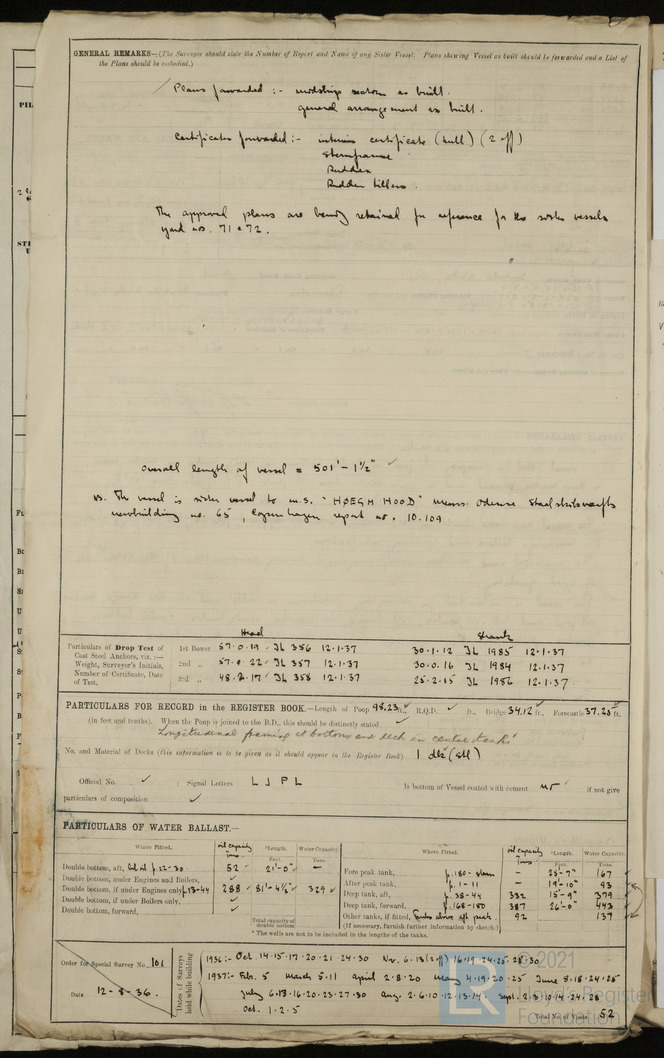 GENERAL REMARKS—(The Surveyor should state the Number of Report and Name of any Sister Vessel. Plans shewing Vessel as built should be forwarded and a List of
the Plans should be embodied.)
Plans forwarded :- midship section as built.
general arrangement as built.
Certificates forwarded :- interim certificate (hull) (2 off)
Sternframe
Rudder
Rudder tillers.
The approved plans are being retained for reference for the sister vessels
yard nos. 71 & 72.
Overall length of vessel = 501'-1½"
The vessel is sister vessel to m.s. "HØEGH HOOD" Odense Staalskibsværft
newbuilding no. 65, Copenhagen report no. 10.109
Head Shank
Particulars of Drop Test of
Cast Steel Anchors, viz. :—
Weight, Surveyor's Initials,
Number of Certificate, Date
of Test.
1st Bower 57.0.19 JL 356 12.1.37 30.1.12 JL 1985 12.1.37
2nd „ 57.0.22 JL 357 12.1.37 30.0.16 JL 1984 12.1.37
3rd „ 48.2.17 JL 358 12.1.37 25.2.15 JL 1986 12.1.37
PARTICULARS FOR RECORD in the REGISTER BOOK.—Length of Poop 98.23 ft., R.Q.D. ft., Bridge 34.12 ft., Forecastle 37.25 ft.
(in feet and tenths). When the Poop is joined to the R.D., this should be distinctly stated
Longitudinal framing at bottom and deck in centre tanks
No. and Material of Decks (this information is to be given as it should appear in the Register Book) 1 dk (stl)
Official No. ; Signal Letters L J P L Is bottom of Vessel coated with cement no if not give
particulars of composition
PARTICULARS OF WATER BALLAST.—
Where Fitted. oil capacity tons. *Length. Feet. Water Capacity. Tons. Where Fitted. oil capacity tons. *Length. Feet. Water Capacity. Tons.
Double bottom, aft, f.22-30. 52 21'-0" Fore peak tank, f.180 - stem — 25'-7" 167
Double bottom, under Engines and Boilers, After peak tank, f.1-11 — 19'-10" 93
Double bottom, if under Engines only f.13-44 288 81'-4½" 329 Deep tank, aft, f.38-44 332 15'-9" 379
Double bottom, if under Boilers only, Deep tank, forward, f.168-180 387 26'-0" 443
Double bottom, forward, Other tanks, if fitted, tanks above aft peak 92 137
Total capacity of double bottom (If necessary, furnish further information by sketch.)
* The wells are not to be included in the lengths of the tanks.
Order for Special Survey No. 101
Date 12-8-36.
Dates of Surveys held while building
1936:- Oct. 14.15.17.20.21.24.30 Nov. 6.13 (2 off) 16.19.24.25.28.30
1937:- Feb. 5 March 5.11 April 2.8.20 May 4.19.20.25 June 8.18.24.25
July 6.13.16.20.23.27.30 Aug. 2.6.10.12.13.14 Sept. 2.3.10.14.24.28
Oct. 1.2.5
Total No. of Visits 52
LR
© 2021
Lloyd's Register
Foundation